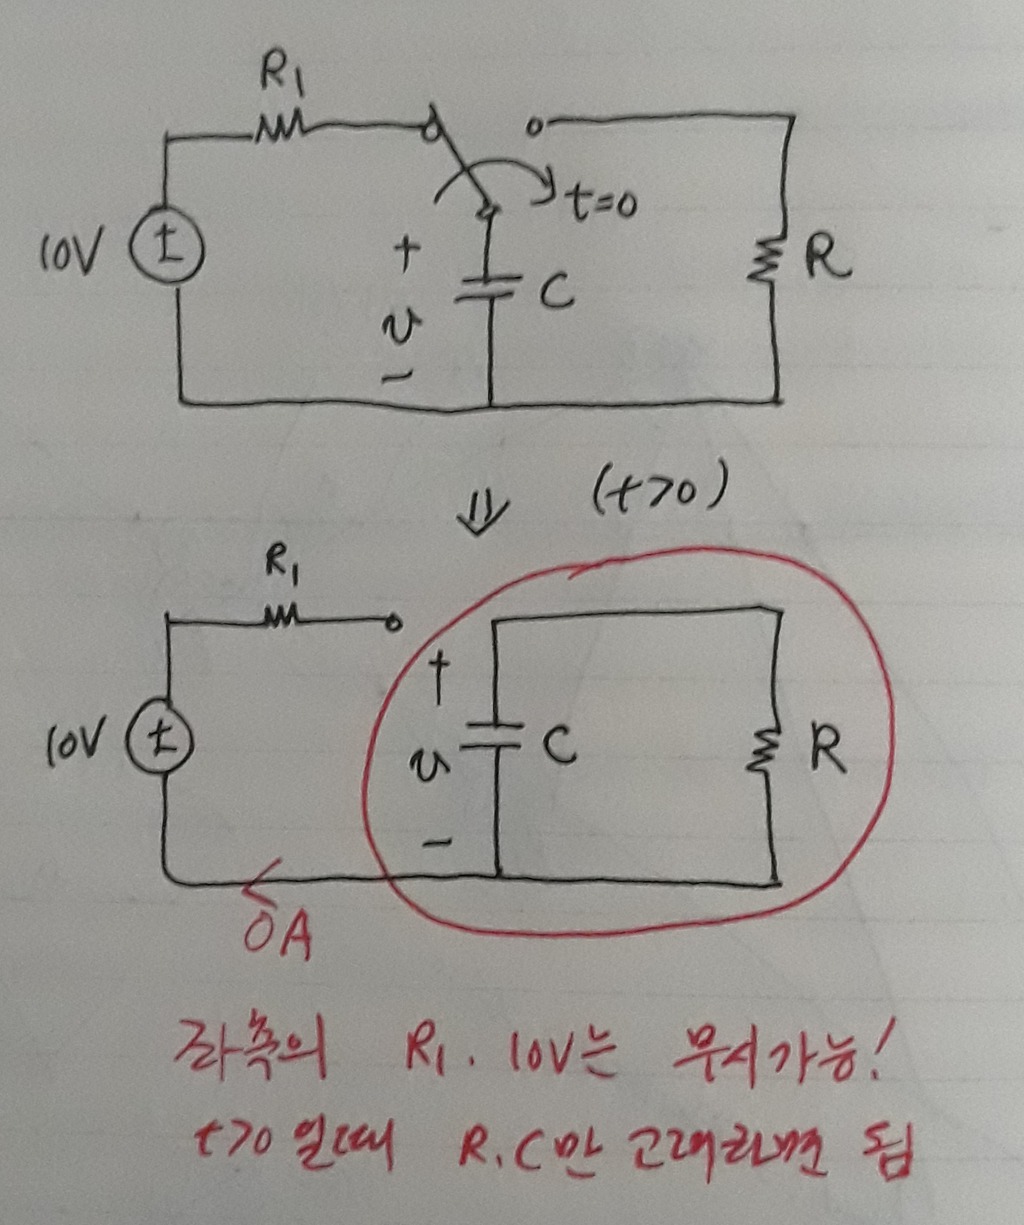 R1
t=0
10V
+
v
-
C
R
(t>0)
R1
10V
+
v
-
C
R
0A
좌측의 R1. 10V는 무시가능!
t>0 일때 R.C만 고려하면 됨